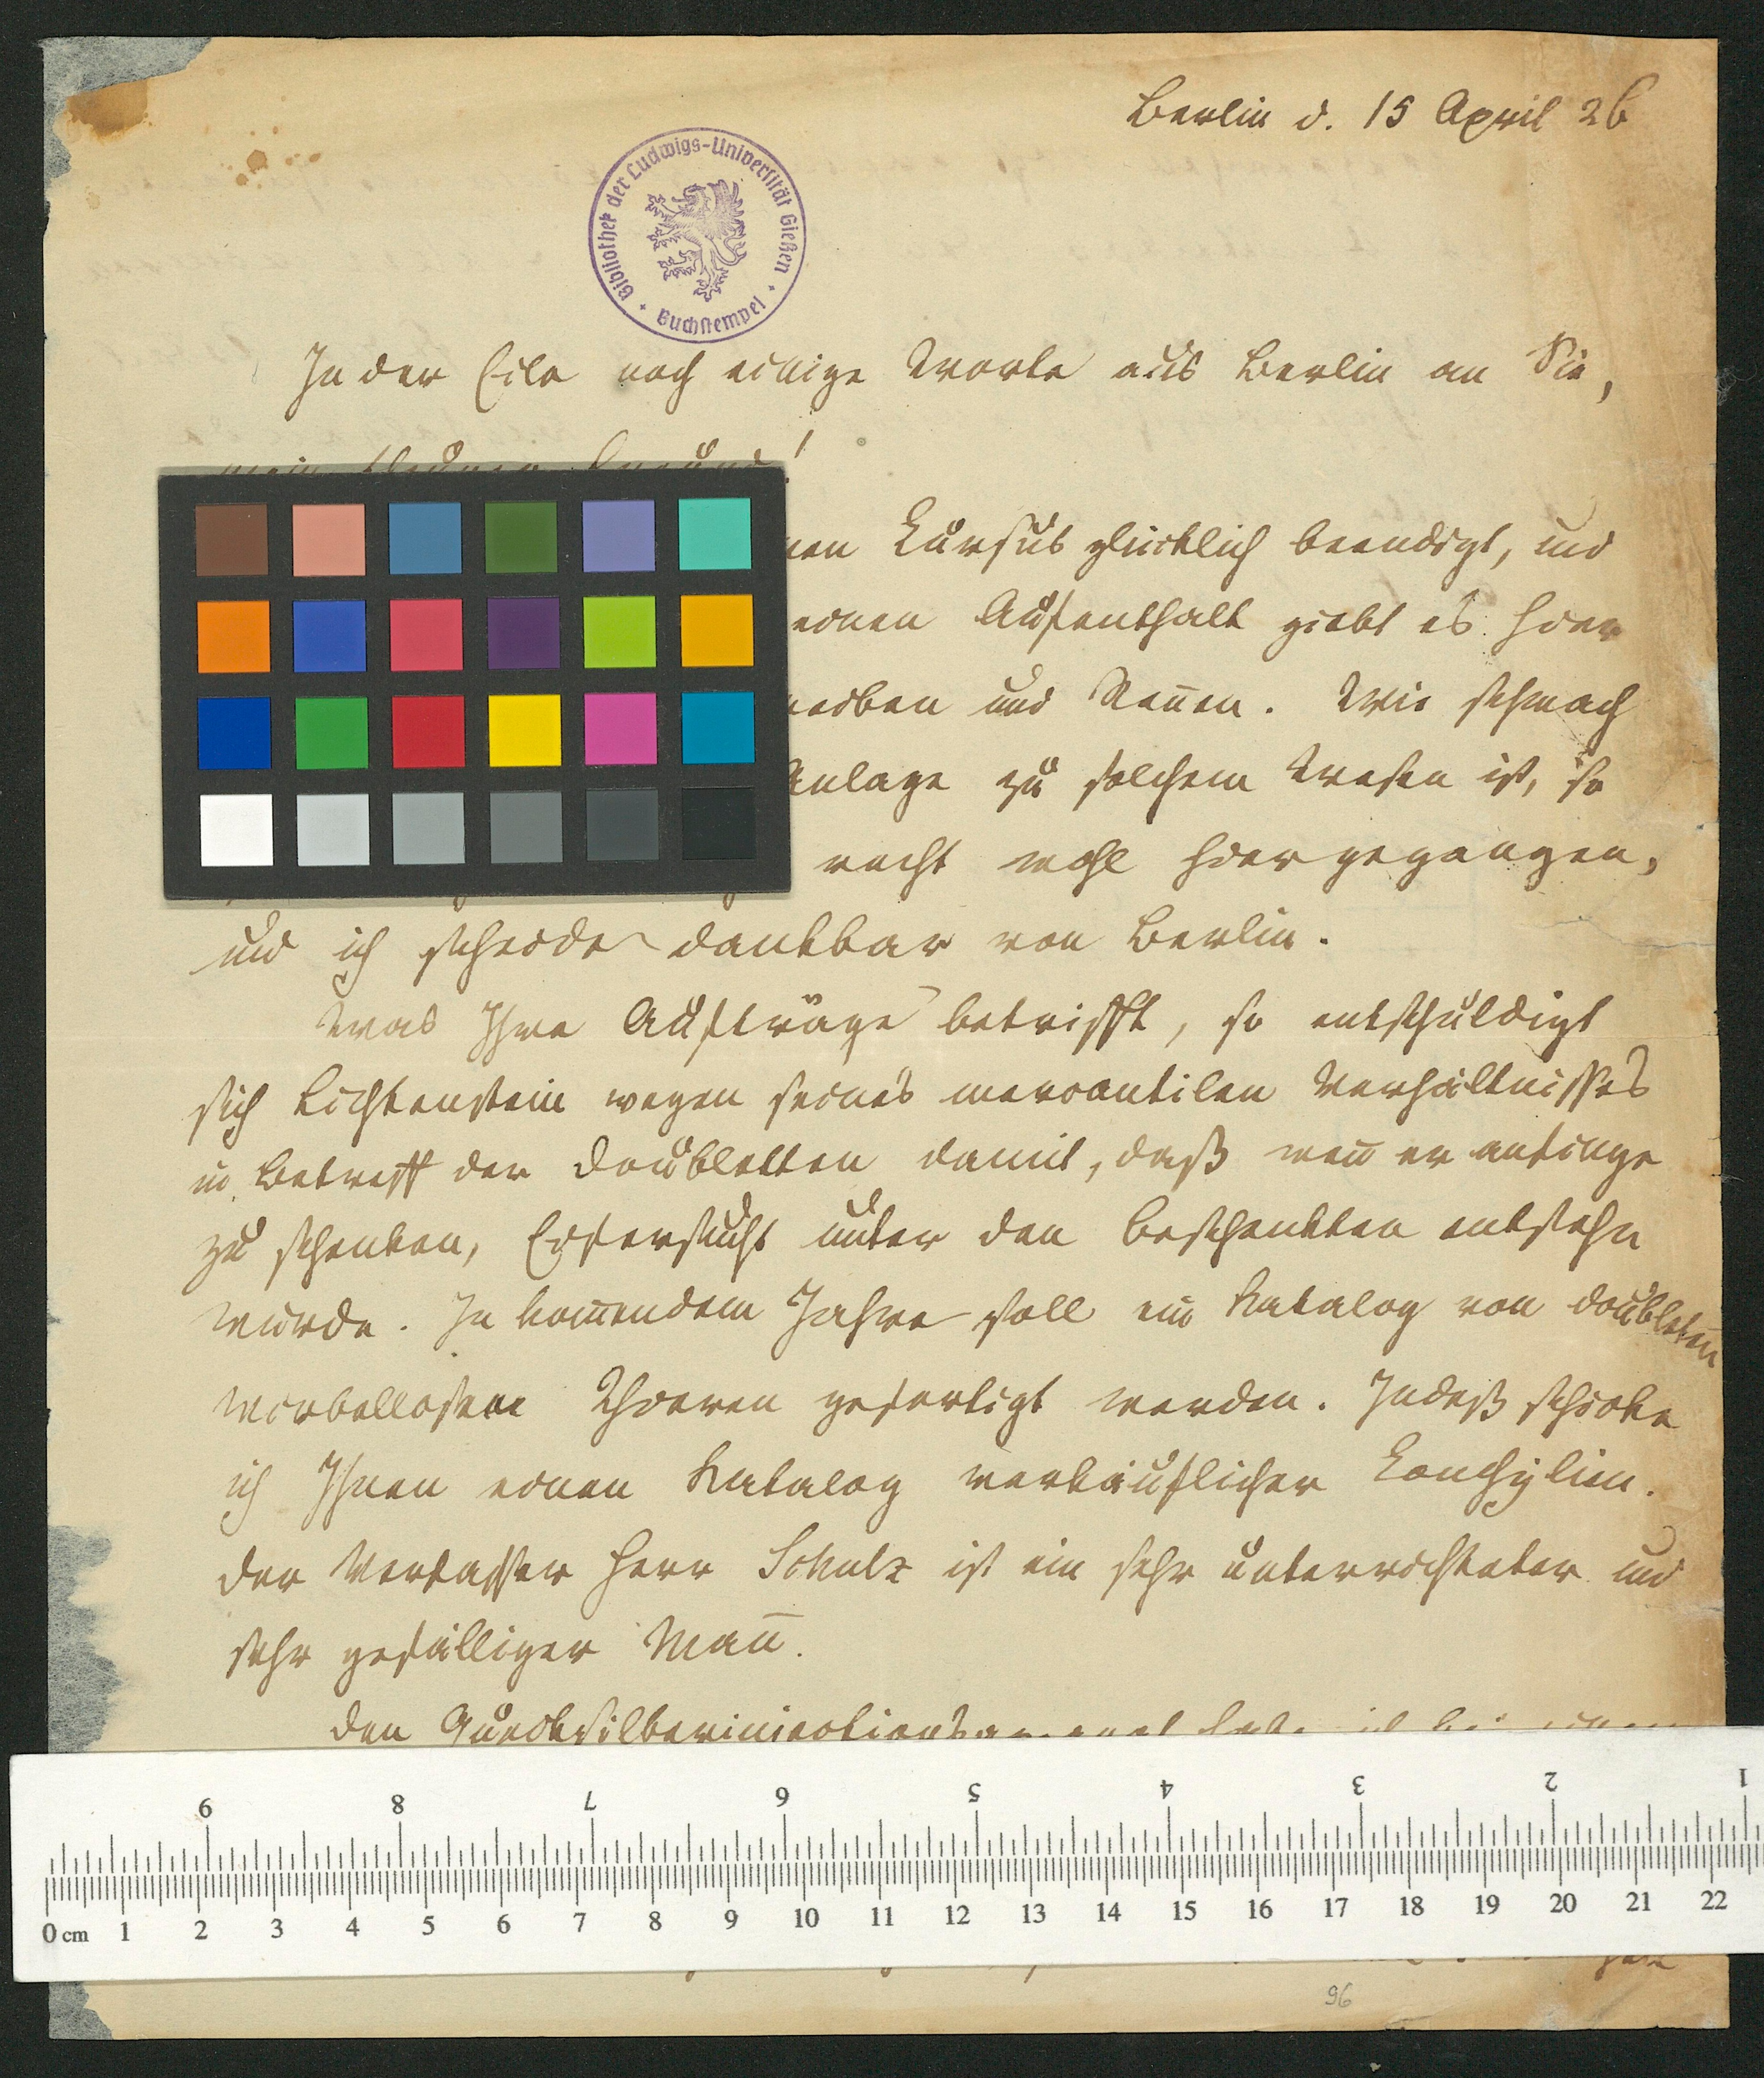 Berlin d. 15 April 26
Bibliothek der Ludwigs-Universität Gießen
Buchstempel
In der Eile noch einige Worte aus Berlin an Sie,
mein theurer Freund!
nen Cursus glücklich beendigt, und
einen Aufenthalt giebt es hier
eiben und Rennen. Wie schwach
Anlage zu solchem Wesen ist, so
recht wohl hier gegangen,
und ich scheide dankbar von Berlin.
Was Ihre Aufträge betrifft, so entschuldigt
sich Lichtenstein wegen seines mercantilen Verhältnisses
in Betreff der Doubletten damit, daß wen̄ er anfinge
zu schenken, Eifersucht unter den Beschenkten entstehn
würde. In kom̄endem Jahre soll ein Katalog von doubleten̄
wirbellosen Thieren gefertigt werden. Indeß schicke
ich Ihnen einen Katalog verkäuflicher Conchylien.
Der Verfasser Herr Schulz ist ein sehr unterrichteter und
sehr gefälliger Man̄.
Den Quecksilberinjections habe ich bei
9 8 7 6 5 4 3 2 1
0 cm 1 2 3 4 5 6 7 8 9 10 11 12 13 14 15 16 17 18 19 20 21 22
96